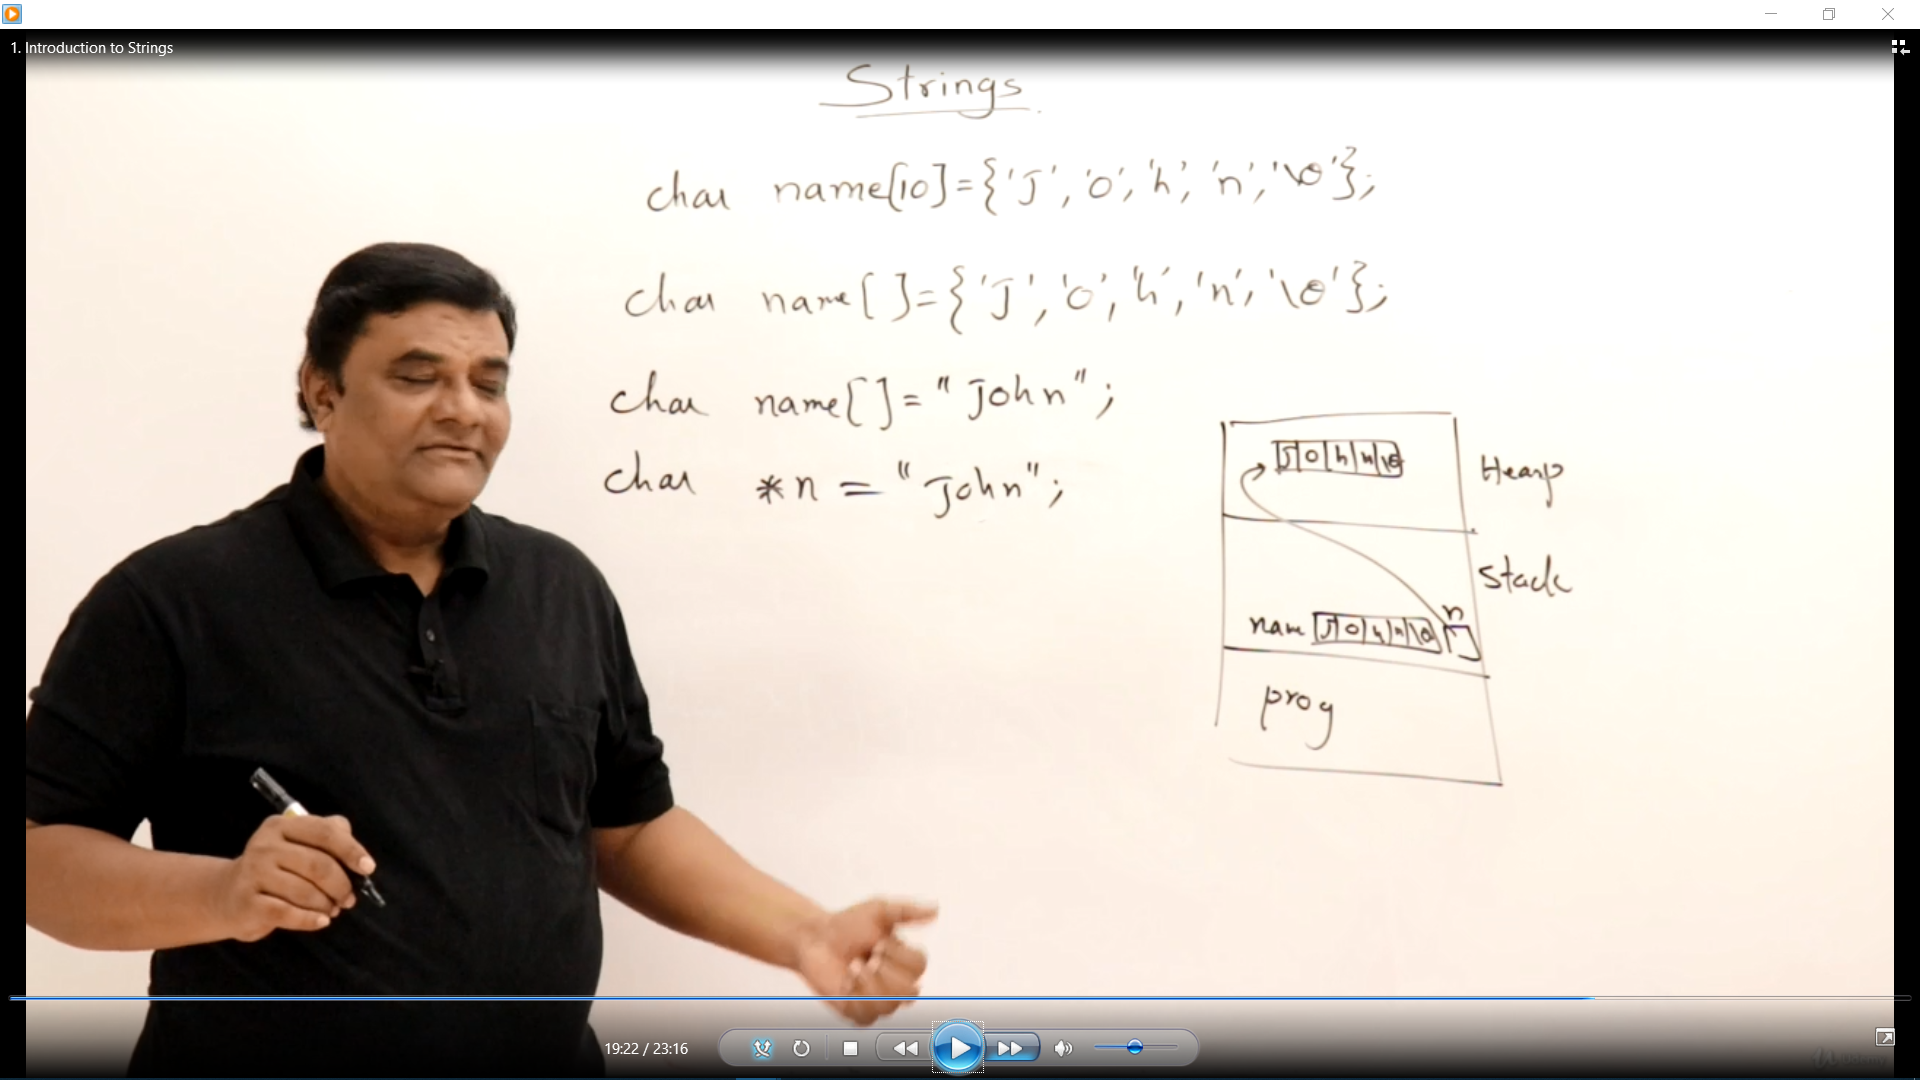 1. Introduction to Strings
Strings
char name[10]={'J','o','h','n','\0'};
char name[]={'J','o','h','n','\0'};
char name[]="John";
char *n = "John";
J o h n \0
Heap
Stack
n
name J o h n \0
prog
19:22 / 23:16